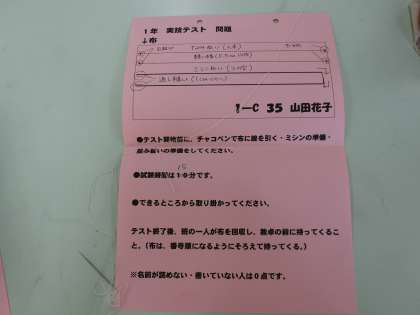 1年 実技テスト 問題
↓布
なみ縫い
ミシン縫い
返し縫い
1−C 35 山田花子
●テスト開始前に、チャコペンで布に線を引く・ミシンの準備・
の準備をしてください。
15
●試験時間は10分です。
●できるところから取り掛かってください。
テスト終了後、班の一人が布を回収し、教卓の前に持ってくるこ
と。(布は、番号順になるようにそろえて持ってくる。)
※名前が読めない・書いていない人は0点です。